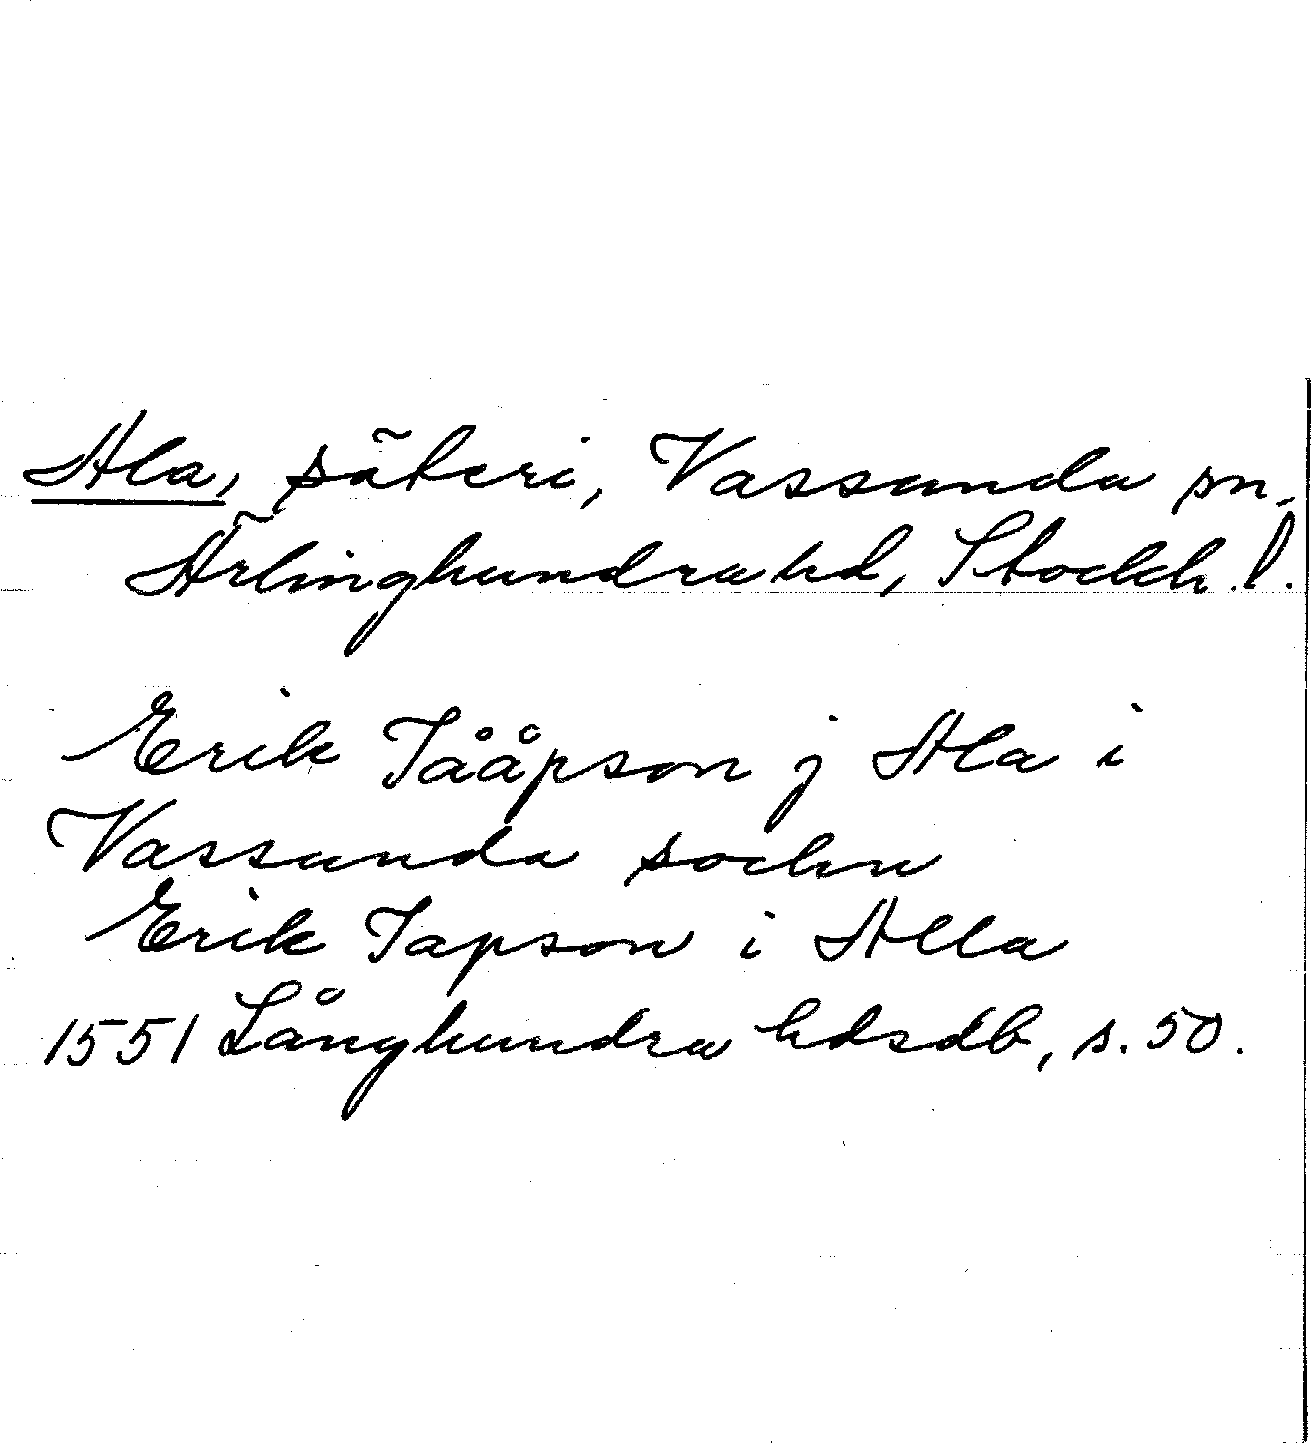 Ala, säteri, Vassunda sn,
Ärlinghundra hd, Stockh. l.
Erik Jååpson j Ala i
Vassunda sochn
Erik Japson i Alla
1551 Långhundra hdsdb, s. 50.